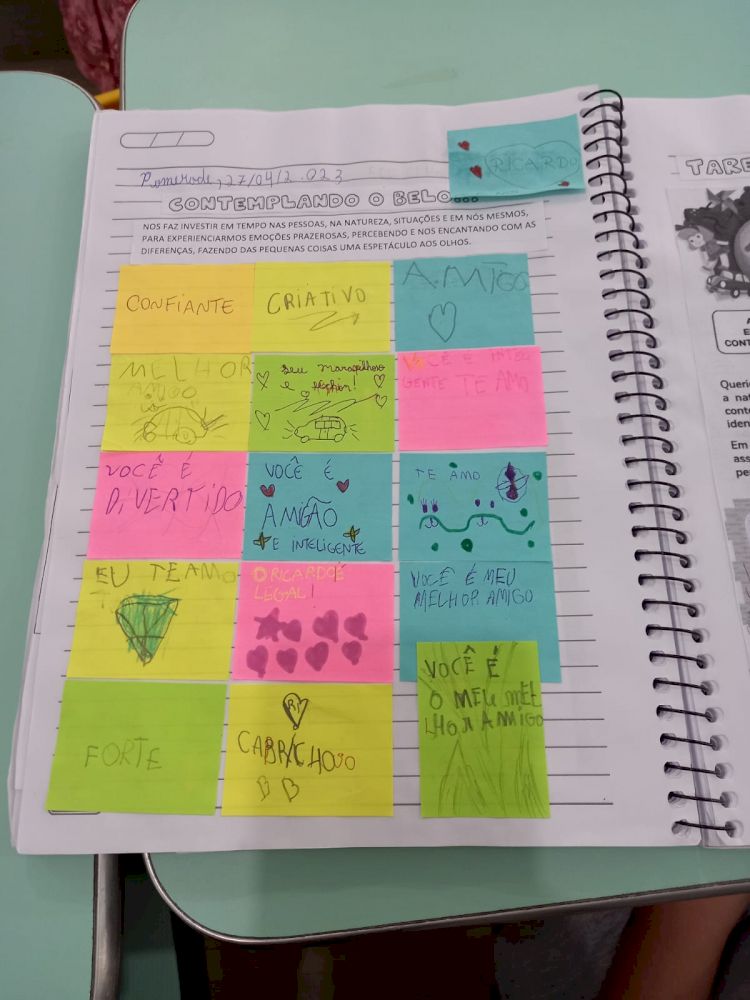 RICARDO
Pomerode, 27/04/2.023
CONTEMPLANDO O BELO...
NOS FAZ INVESTIR EM TEMPO NAS PESSOAS, NA NATUREZA, SITUAÇÕES E EM NÓS MESMOS,
PARA EXPERIENCIARMOS EMOÇÕES PRAZEROSAS, PERCEBENDO E NOS ENCANTANDO COM AS
DIFERENÇAS, FAZENDO DAS PEQUENAS COISAS UMA ESPETÁCULO AOS OLHOS.
CONFIANTE
CRIATIVO
AMIGO
MELHOR
AMIGO
seu maravilhoso
e
VOCÊ É INTELI
GENTE TE AMO
VOCÊ É
DIVERTIDO
VOCÊ É
AMIGÃO
E INTELIGENTE
TE AMO
EU TE AMO
O RICARDO É
LEGAL!
VOCÊ É MEU
MELHOR AMIGO
FORTE
RI
CABRICHOSO
VOCÊ É
O MEU MEE
LHOR AMIGO
TARE
E
CONT
Queri
a nat
cont
iden
Em
ass
pe